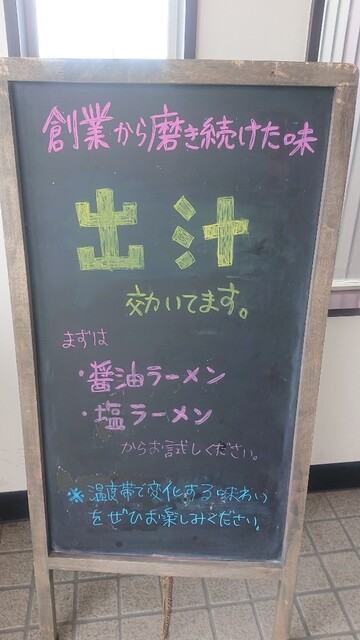 創業から磨き続けた味
出汁
効いてます。
まずは
・醤油ラーメン
・塩ラーメン
からお試しください。
※温度帯で変化する味わい
をぜひお楽しみください。